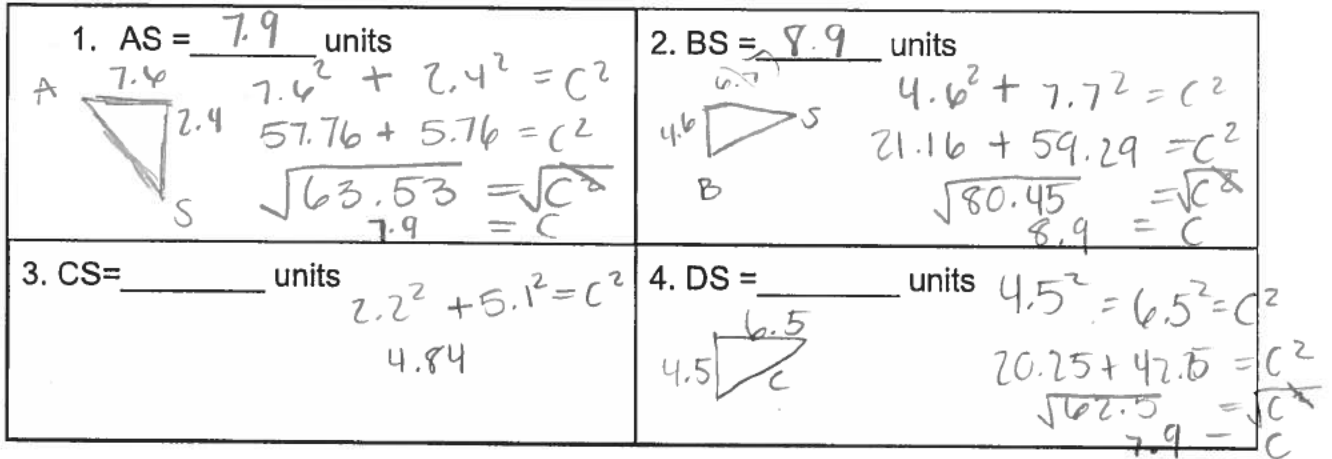 1. AS = 7.9 units
A 7.6
2.4
S
7.6² + 2.4² = C²
57.76 + 5.76 = C²
√63.53 = √C²
7.9 = C
2. BS = 8.9 units
4.6
S
B
4.6² + 7.7² = C²
21.16 + 59.29 = C²
√80.45 = √C²
8.9 = C
3. CS= units
2.2² + 5.1² = C²
4.84
4. DS = units
6.5
4.5
C
4.5² = 6.5² = C²
20.25 + 42.25 = C²
√62.5 = √C²
7.9 = C